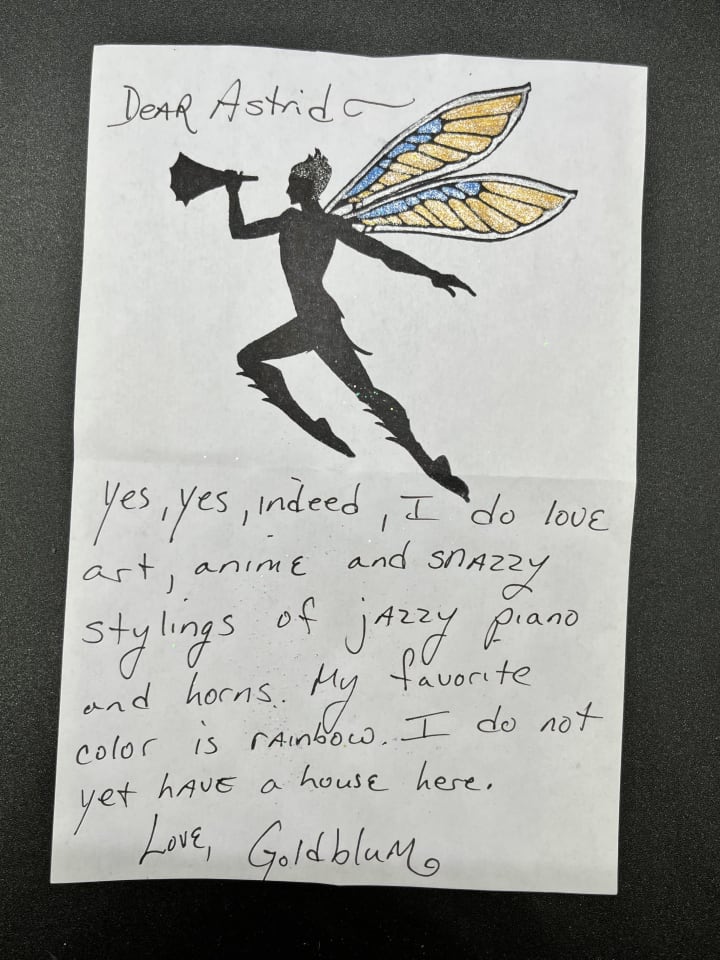 DEAR Astrid ~
yes, yes, indeed, I do love
art, anime and snazzy
stylings of jazzy piano
and horns. My favorite
color is rainbow. I do not
yet have a house here.
Love, Goldblum